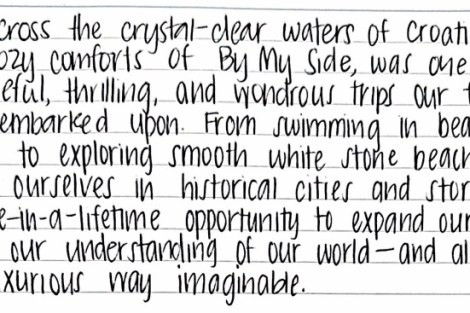 cross the crystal-clear waters of Croati
ozy comforts of By My Side, was one
eful, thrilling, and wondrous trips our t
embarked upon. From swimming in bea
to exploring smooth white stone beach
ourselves in historical cities and stor
e-in-a-lifetime opportunity to expand our
our understanding of our world—and al
xurious way imaginable.